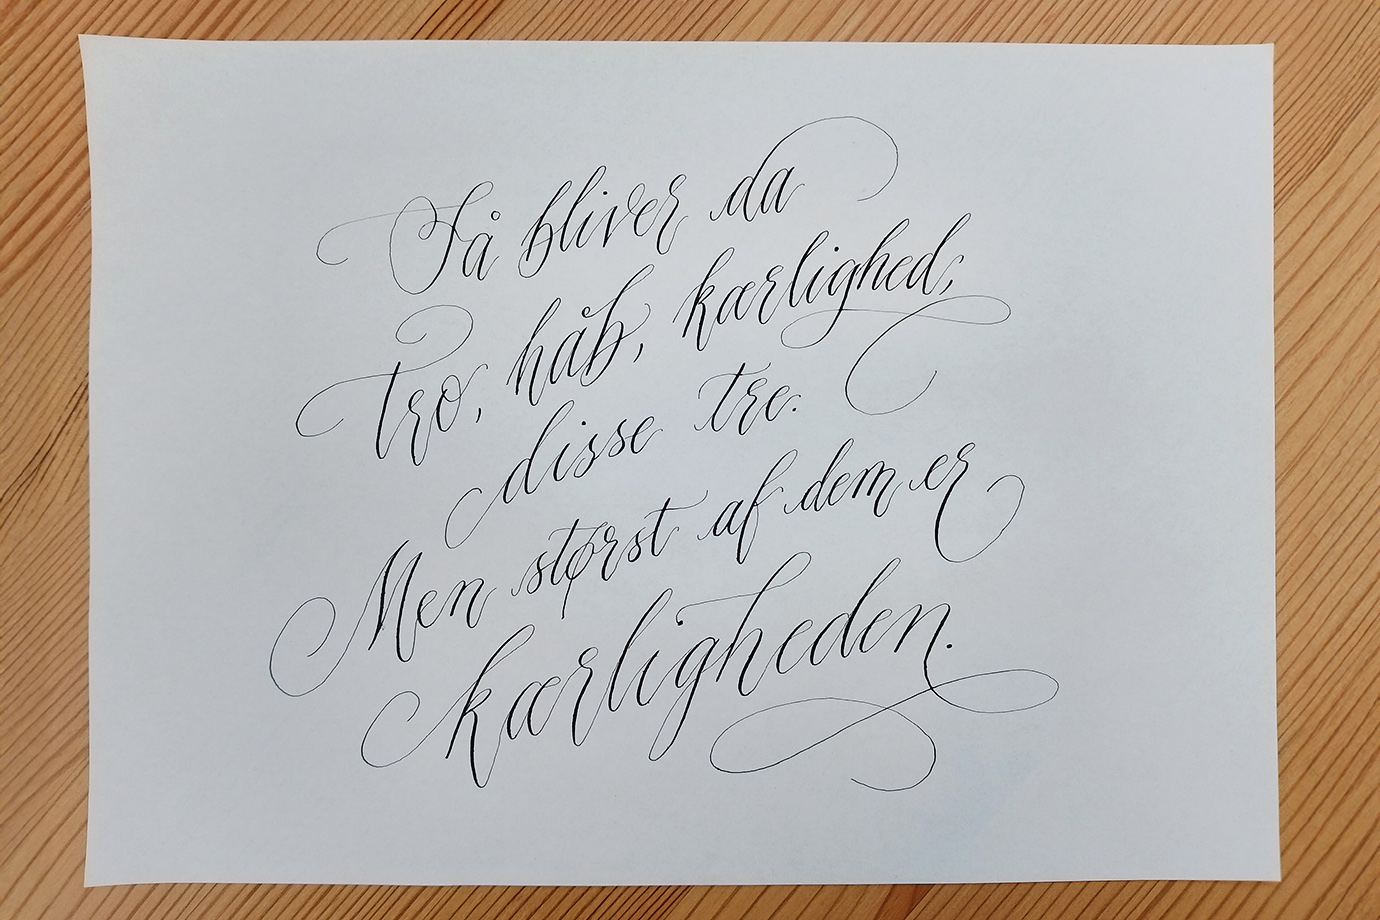 Så bliver da
tro, håb, kærlighed;
disse tre.
Men størst af dem er
kærligheden.